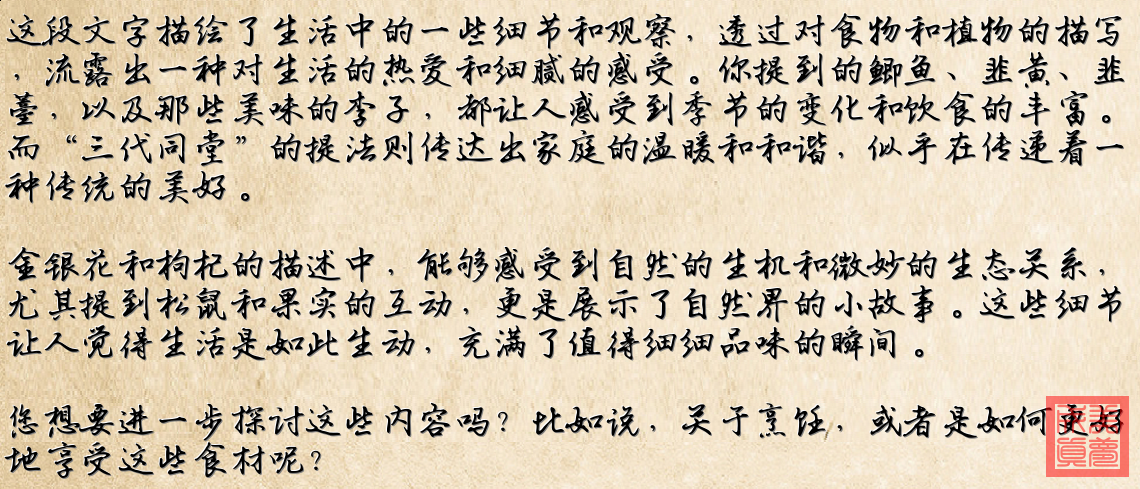 这段文字描绘了生活中的一些细节和观察，透过对食物和植物的描写
，流露出一种对生活的热爱和细腻的感受。你提到的鲫鱼、韭黄、韭
薹，以及那些美味的李子，都让人感受到季节的变化和饮食的丰富。
而“三代同堂”的提法则传达出家庭的温暖和和谐，似乎在传递着一
种传统的美好。
金银花和枸杞的描述中，能够感受到自然的生机和微妙的生态关系，
尤其提到松鼠和果实的互动，更是展示了自然界的小故事。这些细节
让人觉得生活是如此生动，充满了值得细细品味的瞬间。
您想要进一步探讨这些内容吗？比如说，关于烹饪，或者是如何更好
地享受这些食材呢？